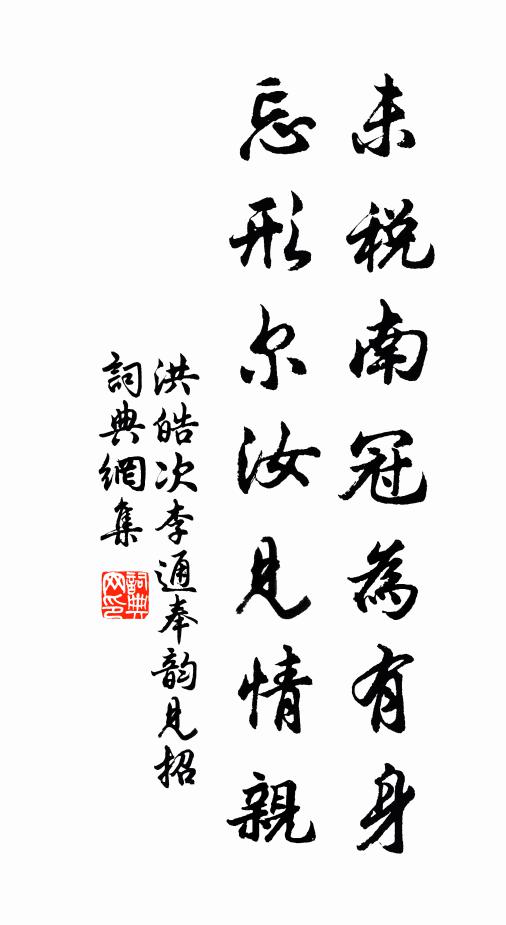 未税南冠為有身
忘形尔汝見情親
洪皓次李通奉韵見招
詞典網集
詞典網印